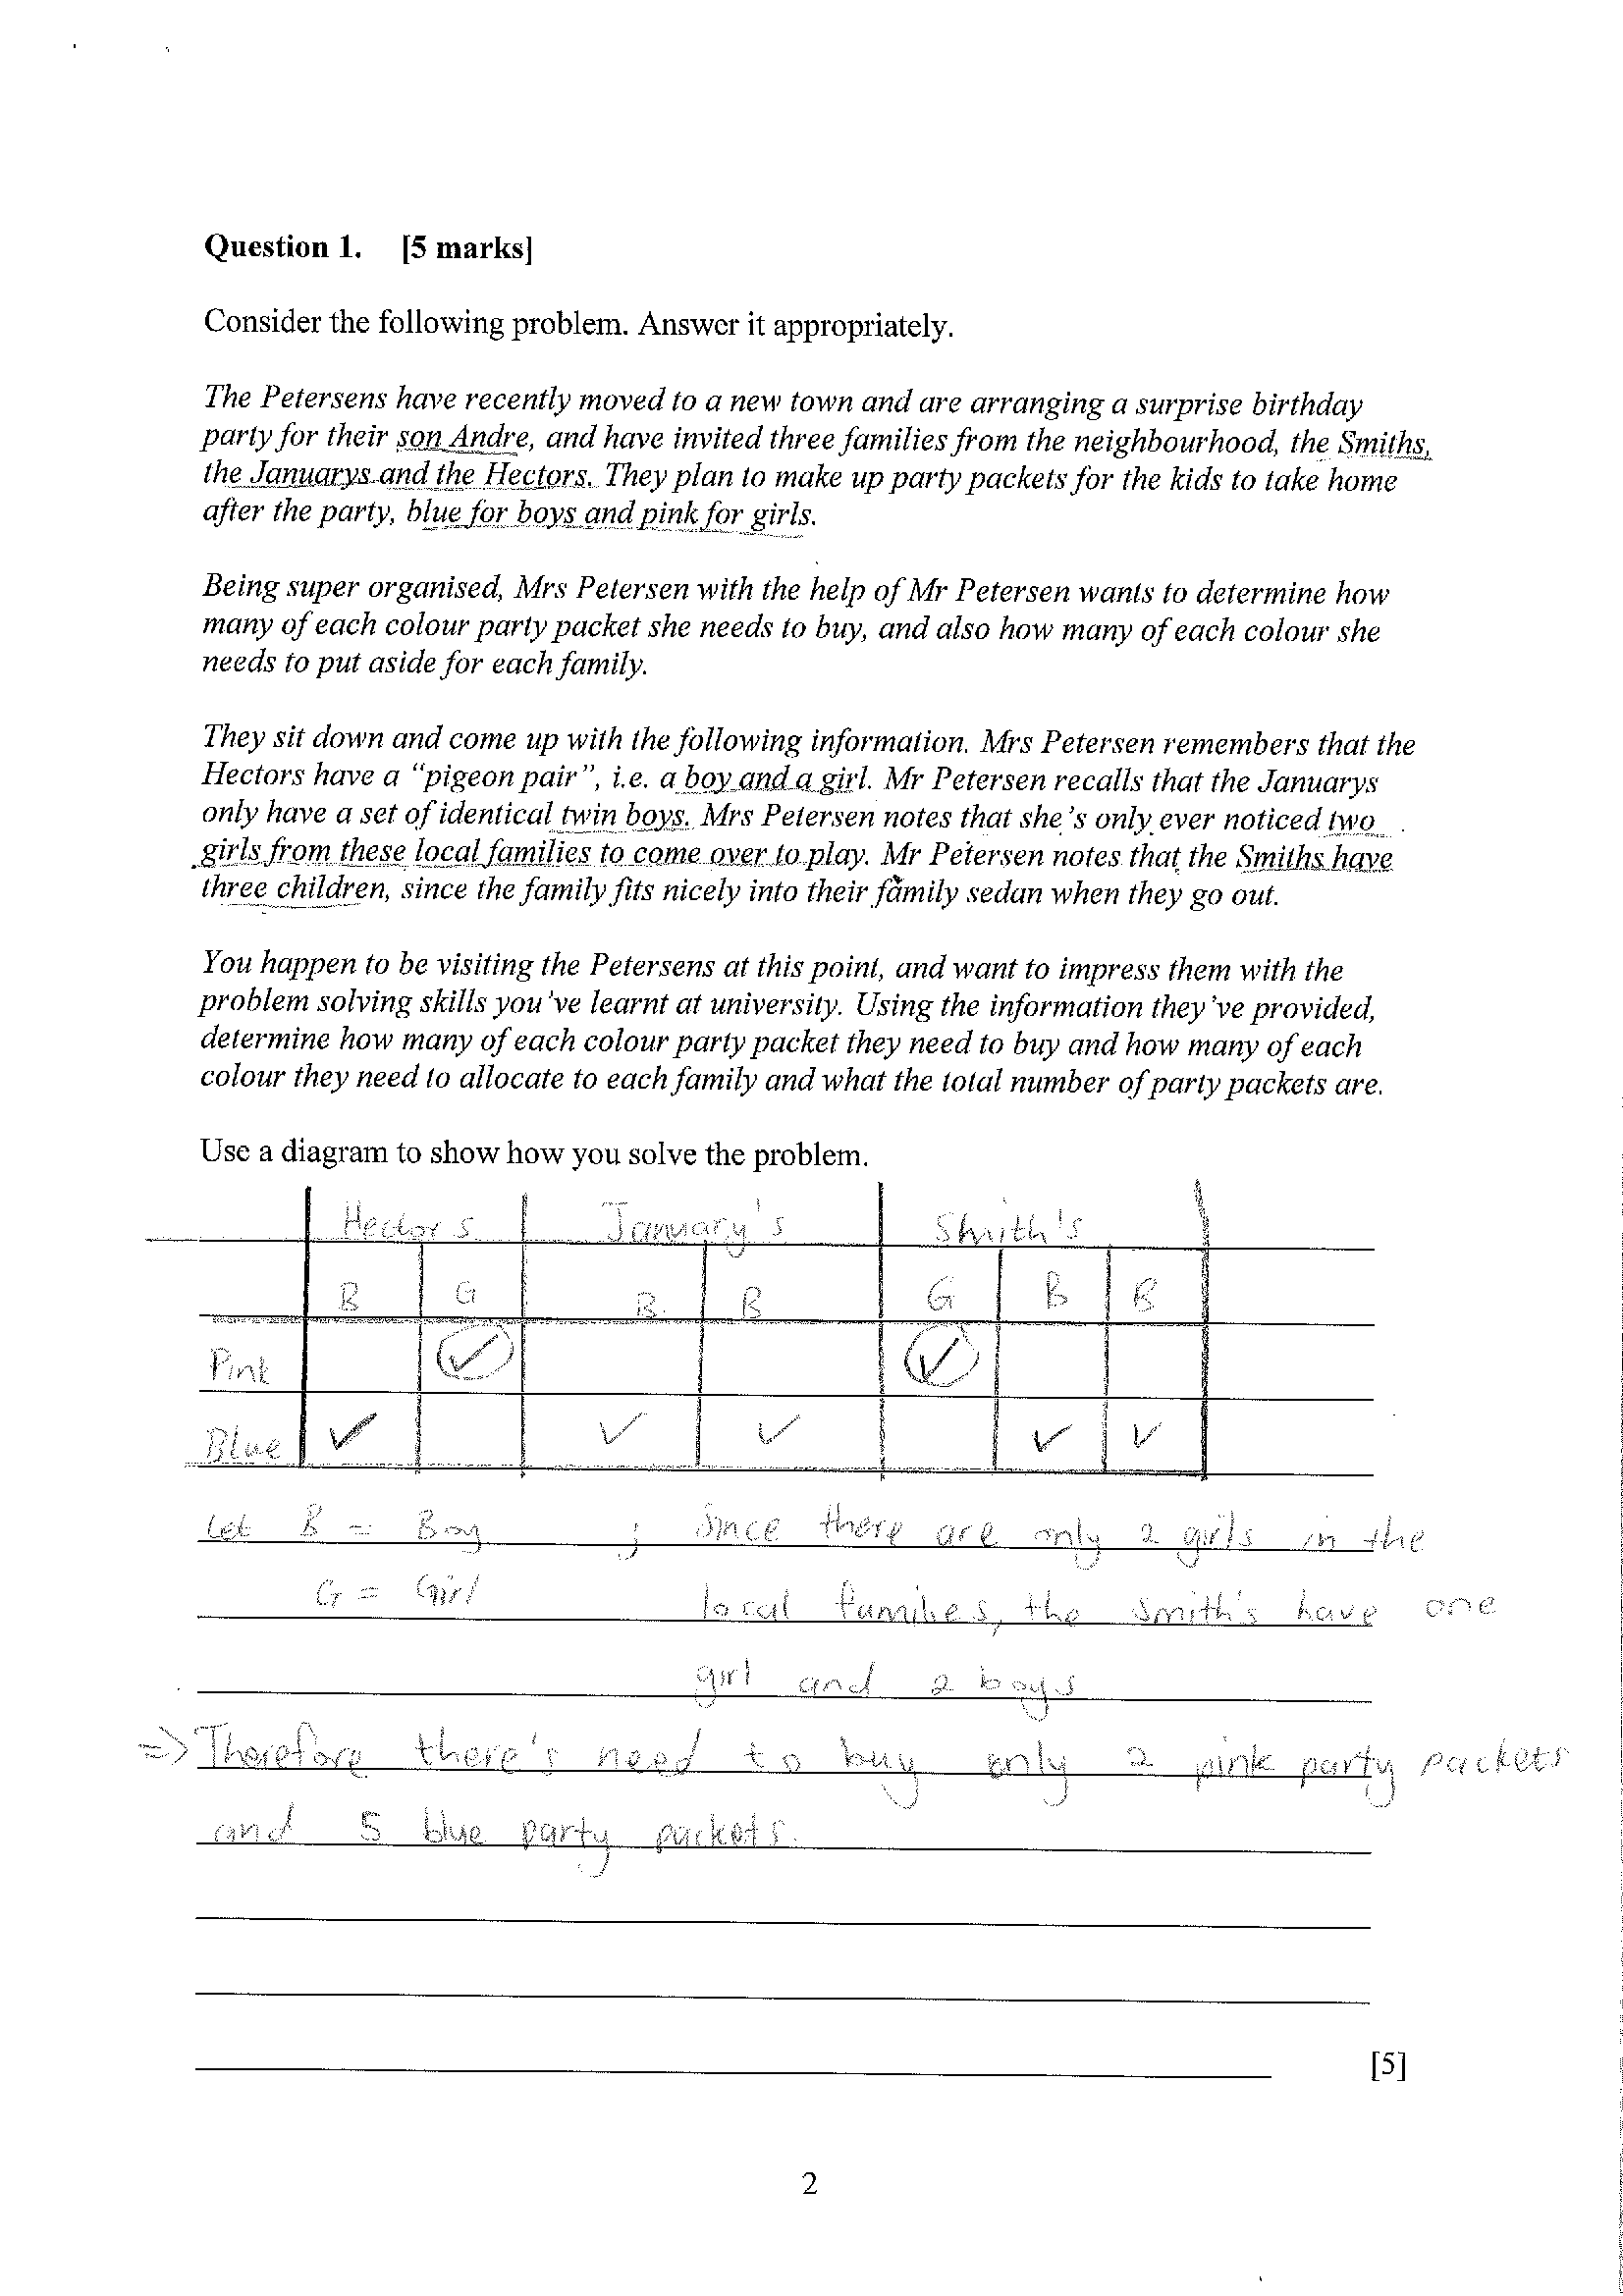 Question 1. [5 marks]
Consider the following problem. Answer it appropriately.
The Petersens have recently moved to a new town and are arranging a surprise birthday
party for their son Andre, and have invited three families from the neighbourhood, the Smiths,
the Januarys and the Hectors. They plan to make up party packets for the kids to take home
after the party, blue for boys and pink for girls.
Being super organised, Mrs Petersen with the help of Mr Petersen wants to determine how
many of each colour party packet she needs to buy, and also how many of each colour she
needs to put aside for each family.
They sit down and come up with the following information. Mrs Petersen remembers that the
Hectors have a “pigeon pair”, i.e. a boy and a girl. Mr Petersen recalls that the Januarys
only have a set of identical twin boys. Mrs Petersen notes that she’s only ever noticed two
girls from these local families to come over to play. Mr Petersen notes that the Smiths have
three children, since the family fits nicely into their family sedan when they go out.
You happen to be visiting the Petersens at this point, and want to impress them with the
problem solving skills you’ve learnt at university. Using the information they’ve provided,
determine how many of each colour party packet they need to buy and how many of each
colour they need to allocate to each family and what the total number of party packets are.
Use a diagram to show how you solve the problem.
Hectors January's Smith's
B G B B G B B
Pink ✓ ✓
Blue ✓ ✓ ✓ ✓ ✓
Let B = Boy ; Since there are only 2 girls in the
G = Girl local families, the Smith's have one
girl and 2 boys
=> Therefore there's need to buy only 2 pink party packets
and 5 blue party packets.
[5]
2